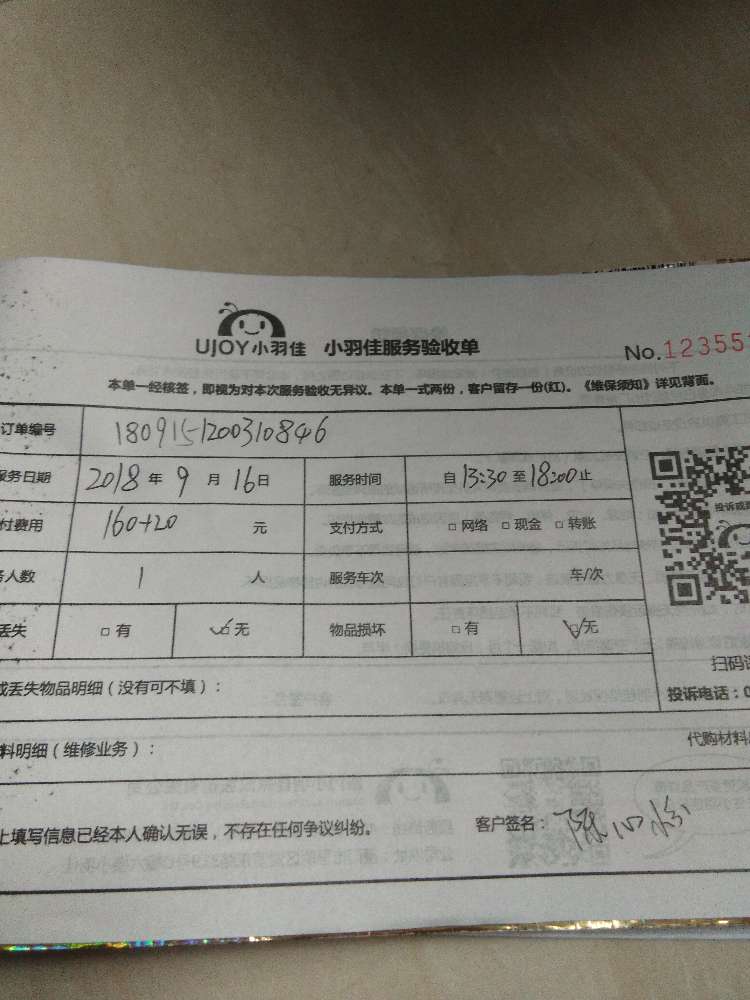 UJOY小羽佳 小羽佳服务验收单 No.12355
本单一经核签，即视为对本次服务验收无异议。本单一式两份，客户留存一份(红)。《维保须知》详见背面。
订单编号 1809151200310846
服务日期 2018年9月16日 服务时间 自13:30至18:00止
付费用 160+20 元 支付方式 □网络 □现金 □转账
人数 1 人 服务车次 车/次
丢失 □有 ☑无 物品损坏 □有 ☑无
投诉或
或丢失物品明细（没有可不填）：
扫码
投诉电话：0
料明细（维修业务）：
代购材料
上填写信息已经本人确认无误，不存在任何争议纠纷。 客户签名：陈